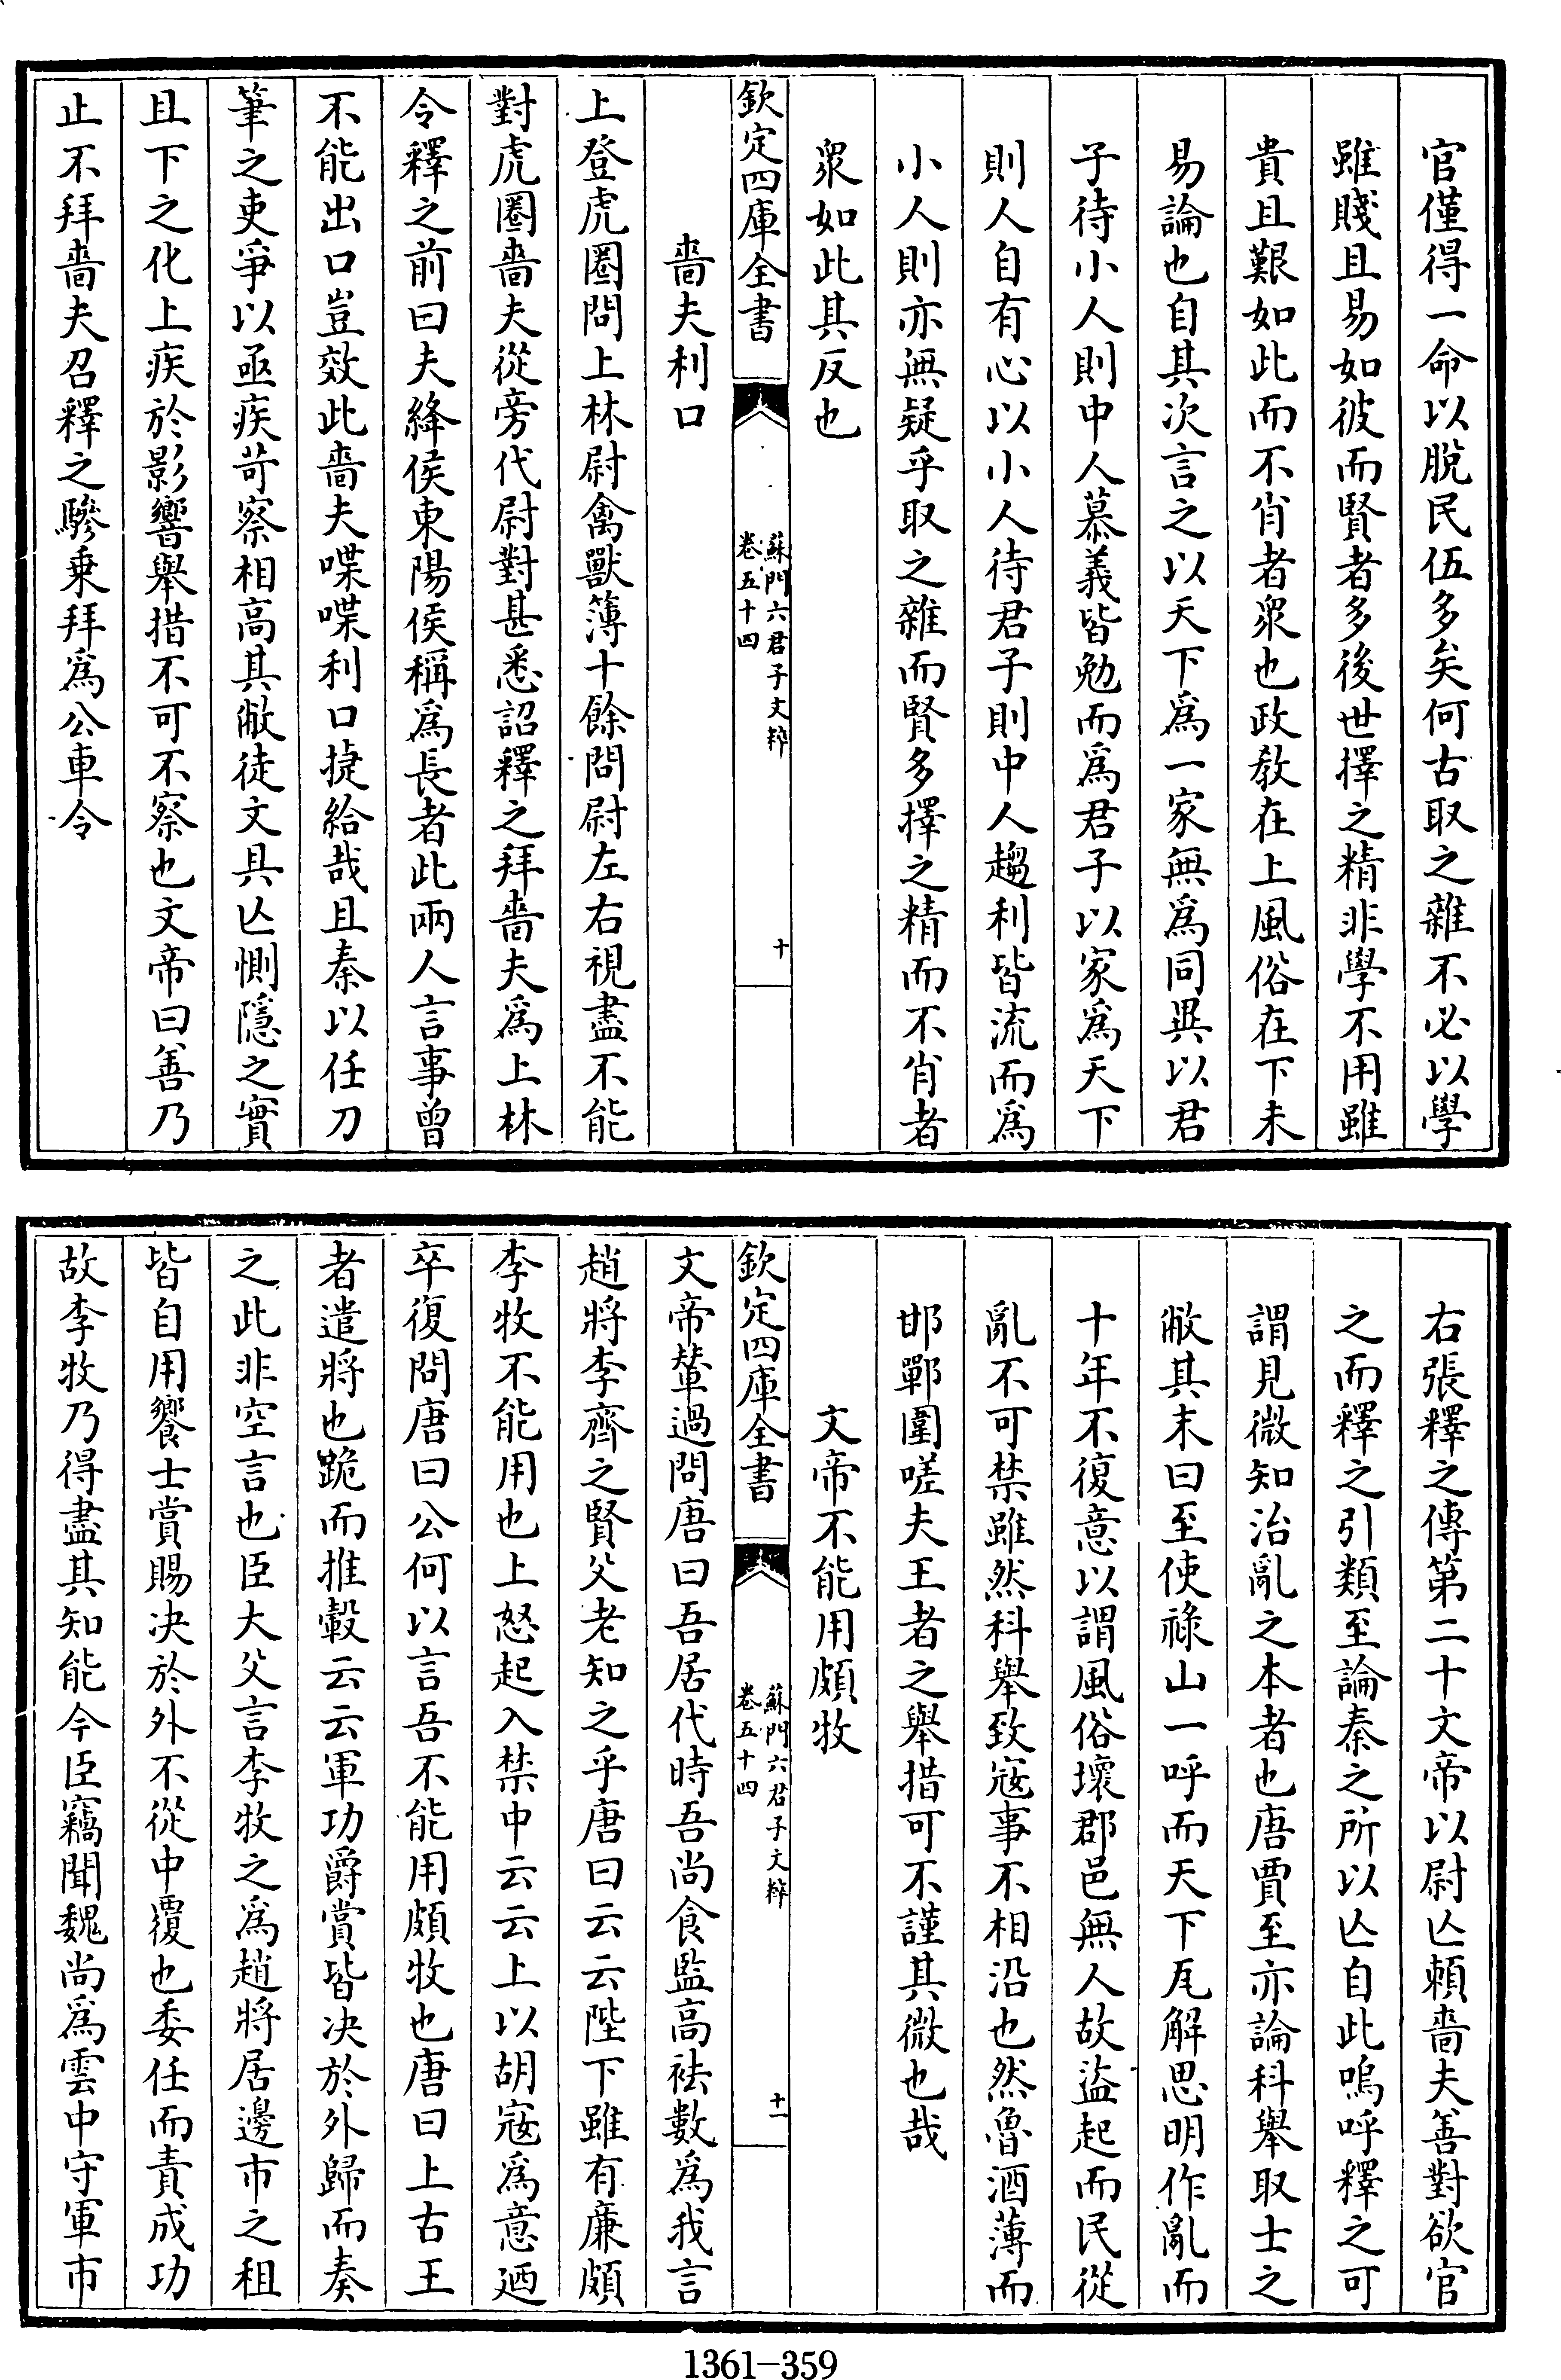 官僅得一命以脫民伍多矣何古取之雜不必以學
雖賤且易如彼而賢者多後世擇之精非學不用雖
貴且艱如此而不肖者衆也政教在上風俗在下未
易論也自其次言之以天下爲一家無爲同異以君
子待小人則中人慕義皆勉而爲君子以家爲天下
則人自有心以小人待君子則中人趨利皆流而爲
小人則亦無疑乎取之雜而賢多擇之精而不肖者
衆如此其反也
欽定四庫全書
蘇門六君子文粹
卷五十四
十
嗇夫利口
上登虎圈問上林尉禽獸簿十餘問尉左右視盡不能
對虎圈嗇夫從旁代尉對甚悉詔釋之拜嗇夫爲上林
令釋之前曰夫絳侯東陽侯稱爲長者此兩人言事曾
不能出口豈效此嗇夫喋喋利口捷給哉且秦以任刀
筆之吏爭以亟疾苛察相高其敝徒文具亾惻隱之實
且下之化上疾於影響舉措不可不察也文帝曰善乃
止不拜嗇夫召釋之驂乗拜爲公車令
右張釋之傳第二十文帝以尉亾賴嗇夫善對欲官
之而釋之引類至論秦之所以亾自此嗚呼釋之可
謂見微知治亂之本者也唐賈至亦論科舉取士之
敝其末曰至使祿山一呼而天下瓦解思明作亂而
十年不復意以謂風俗壞郡邑無人故盜起而民從
亂不可禁雖然科舉致寇事不相沿也然魯酒薄而
邯鄲圍嗟夫王者之舉措可不謹其微也哉
文帝不能用頗牧
欽定四庫全書
蘇門六君子文粹
卷五十四
十一
文帝輦過問唐曰吾居代時吾尚食監高袪數爲我言
趙將李齊之賢父老知之乎唐曰云云陛下雖有廉頗
李牧不能用也上怒起入禁中云云上以胡寇爲意廼
卒復問唐曰公何以言吾不能用頗牧也唐曰上古王
者遣將也跪而推轂云云軍功爵賞皆决於外歸而奏
之此非空言也臣大父言李牧之爲趙將居邊市之租
皆自用饗士賞賜决於外不從中覆也委任而責成功
故李牧乃得盡其知能今臣竊聞魏尚爲雲中守軍市
1361—359